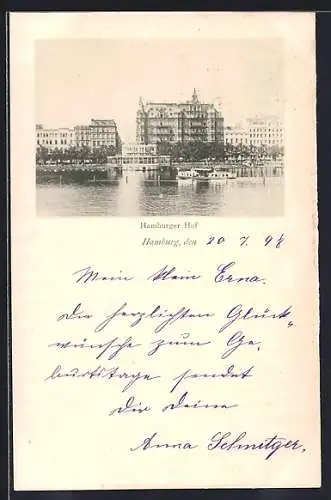 Hamburger Hof
Hamburg, den 20 7. 98
Mein klein Erna.
Die herzlichten Glück-
wünsche zum Ge-
burtstage sendet
Dir Deine
Anna Schmetger.